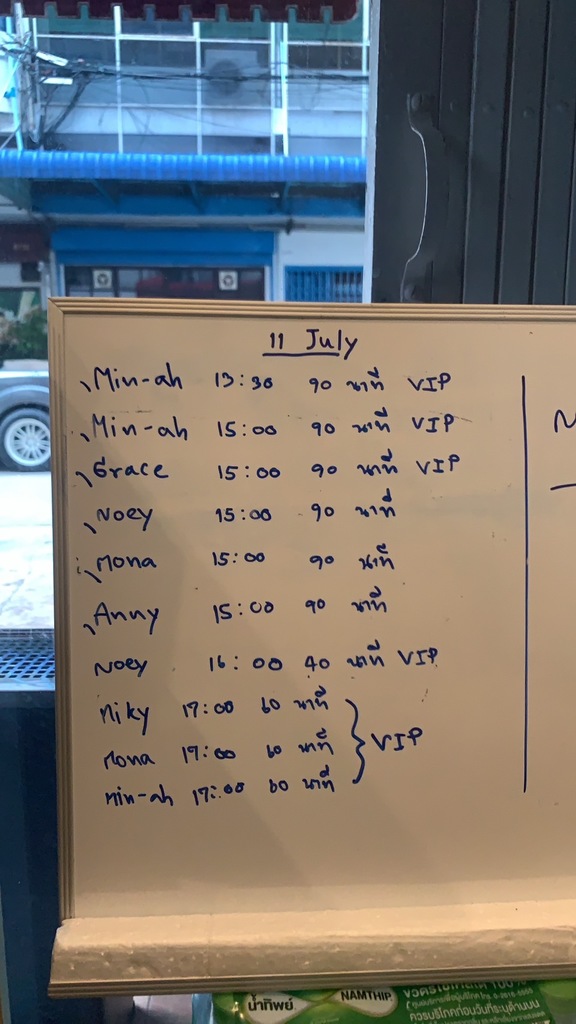 11 July
Min-ah 13:30 90 นาที VIP
Min-ah 15:00 90 นาที VIP
Grace 15:00 90 นาที VIP
Noey 15:00 90 นาที
Mona 15:00 90 นาที
Anny 15:00 90 นาที
Noey 16:00 40 นาที VIP
Miky 17:00 60 นาที
Mona 17:00 60 นาที VIP
Min-ah 17:00 60 นาที
น้ำทิพย์
NAMTHIP
ควรบริโภคก่อนวันที่ระบุด้านบน